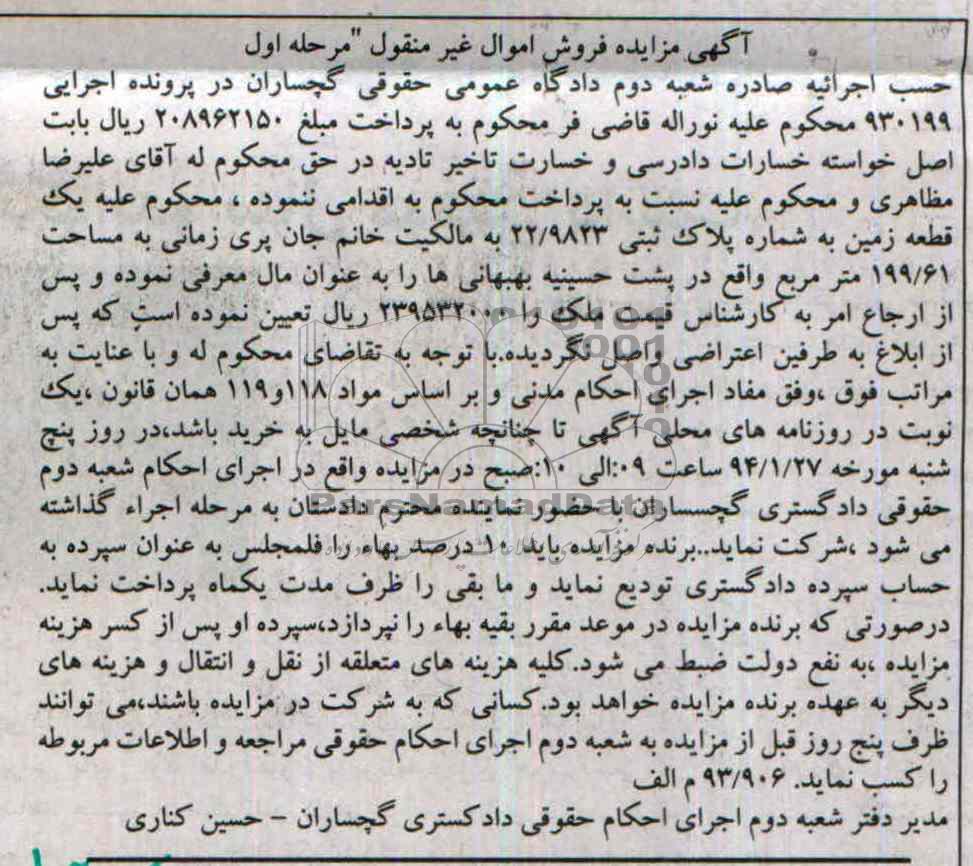 آگهی مزایده فروش اموال غیر منقول "مرحله اول
حسب اجرائیه صادره شعبه دوم دادگاه عمومی حقوقی گچساران در پرونده اجرایی
۹۳۰۱۹۹ محکوم علیه نوراله قاضی فر محکوم به پرداخت مبلغ ۲۰۸۹۶۲۱۵۰ ریال بابت
اصل خواسته خسارات دادرسی و خسارت تاخیر تادیه در حق محکوم له آقای علیرضا
مظاهری و محکوم علیه نسبت به پرداخت محکوم به اقدامی ننموده ، محکوم علیه یک
قطعه زمین به شماره پلاک ثبتی ۲۲/۹۸۲۳ به مالکیت خانم جان پری زمانی به مساحت
۱۹۹/۶۱ متر مربع واقع در پشت حسینیه بهبهانی ها را به عنوان مال معرفی نموده و پس
از ارجاع امر به کارشناس قیمت ملک را ۲۳۹۵۳۲۰۰۰ ریال تعیین نموده است که پس
از ابلاغ به طرفین اعتراضی واصل نگردیده.با توجه به تقاضای محکوم له و با عنایت به
مراتب فوق ،وفق مفاد اجرای احکام مدنی و بر اساس مواد ۱۱۸و۱۱۹ همان قانون ،یک
نوبت در روزنامه های محلی آگهی تا چنانچه شخصی مایل به خرید باشد،در روز پنج
شنبه مورخه ۹۴/۱/۲۷ ساعت ۰۹:الی ۱۰:صبح در مزایده واقع در اجرای احکام شعبه دوم
حقوقی دادگستری گچسساران با حضور نماینده محترم دادستان به مرحله اجراء گذاشته
می شود ،شرکت نماید..برنده مزایده باید ۱۰ درصد بهاء را فلمجلس به عنوان سپرده به
حساب سپرده دادگستری تودیع نماید و ما بقی را ظرف مدت یکماه پرداخت نماید.
درصورتی که برنده مزایده در موعد مقرر بقیه بهاء را نپردازد،سپرده او پس از کسر هزینه
مزایده ،به نفع دولت ضبط می شود.کلیه هزینه های متعلقه از نقل و انتقال و هزینه های
دیگر به عهده برنده مزایده خواهد بود.کسانی که به شرکت در مزایده باشند،می توانند
ظرف پنج روز قبل از مزایده به شعبه دوم اجرای احکام حقوقی مراجعه و اطلاعات مربوطه
را کسب نماید. ۹۳/۹۰۶ م الف
مدیر دفتر شعبه دوم اجرای احکام حقوقی دادکستری گچساران – حسین کناری
ParsNamadData